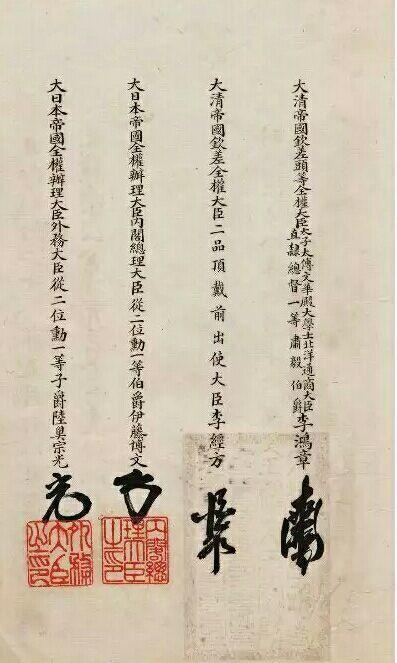 大清帝國欽差頭等全權大臣太子太傅文華殿大學士北洋通商大臣直隸總督一等肅毅伯爵李鴻章
大清帝國欽差全權大臣二品頂戴前出使大臣李經方
大日本帝國全權辦理大臣內閣總理大臣從二位勳一等伯爵伊藤博文
內閣總
理大臣
之印
大日本帝國全權辦理大臣外務大臣從二位勳一等子爵陸奧宗光
外務
大臣
之印